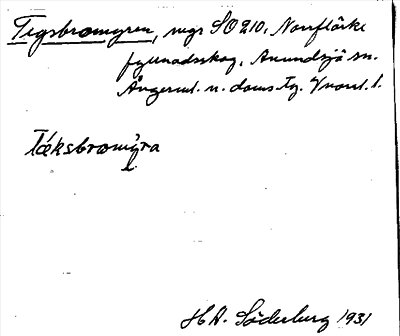 Tegsbromyren, myr SO 210. Norrflärke
fyllnadsskog, Anundsjö sn.
Ångerml. n. doms. tg. Vnorrl. l.
Täksbromyra
H A. Söderberg 1931